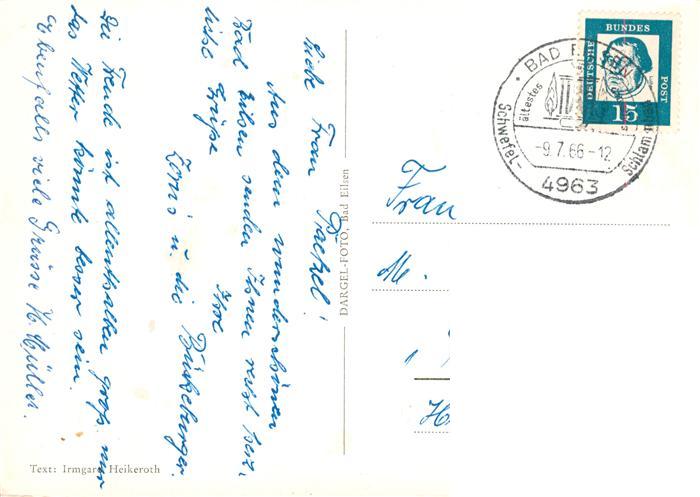 Liebe Frau Paetzel!
Aus dem wunderschönen
Bad Eilsen senden Ihnen recht herz-
liche Grüße Ihre
u. die Bückeburger.
Die Freude ist allenthalben groß, nur
das Wetter könnte besser sein.
Ebenfalls viele Grüsse H. Müller.
Text: Irmgard Heikeroth
DARGEL-FOTO, Bad Eilsen
DEUTSCHE BUNDESPOST
15
BAD
ältestes
Schwefel-
Schlamm
-9.7.66-12
4963
Frau
M.